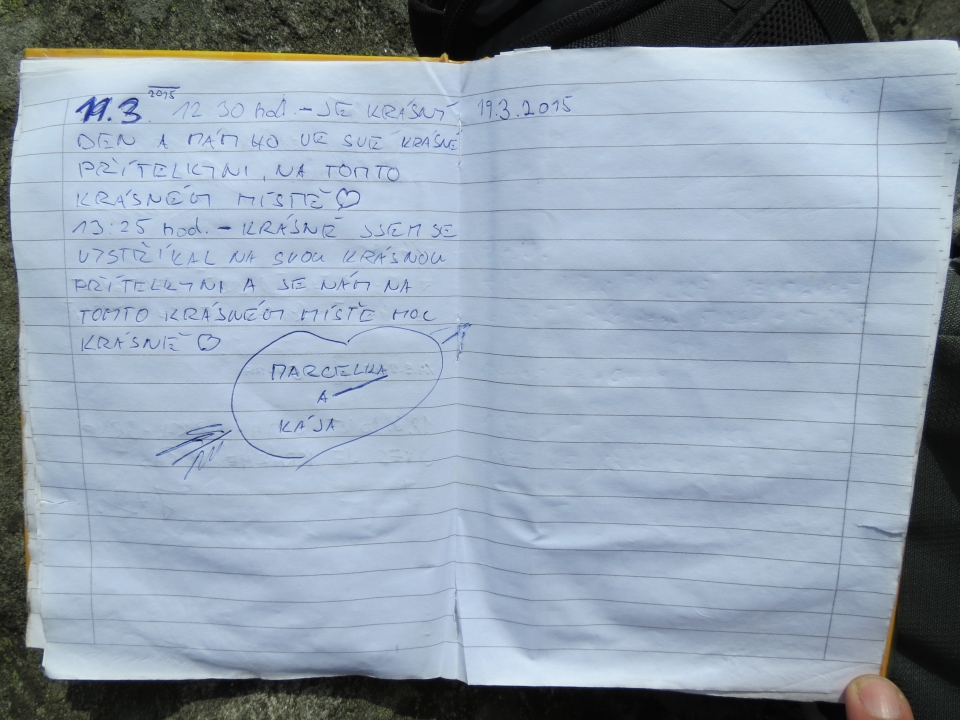 19.3. 2015 12 30 hod. - JE KRÁSNÝ
DEN A MÁM HO VE SVÉ KRÁSNÉ
PŘÍTELKYNI, NA TOMTO
KRÁSNÉM MÍSTĚ ♡
13:25 hod. - KRÁSNĚ JSEM SE
VYSTŘÍKAL NA SVOU KRÁSNOU
PŘÍTELKYNI A JE NÁM NA
TOMTO KRÁSNÉM MÍSTĚ MOC
KRÁSNĚ ♡
MARCELKA
A
KÁJA
19.3.2015